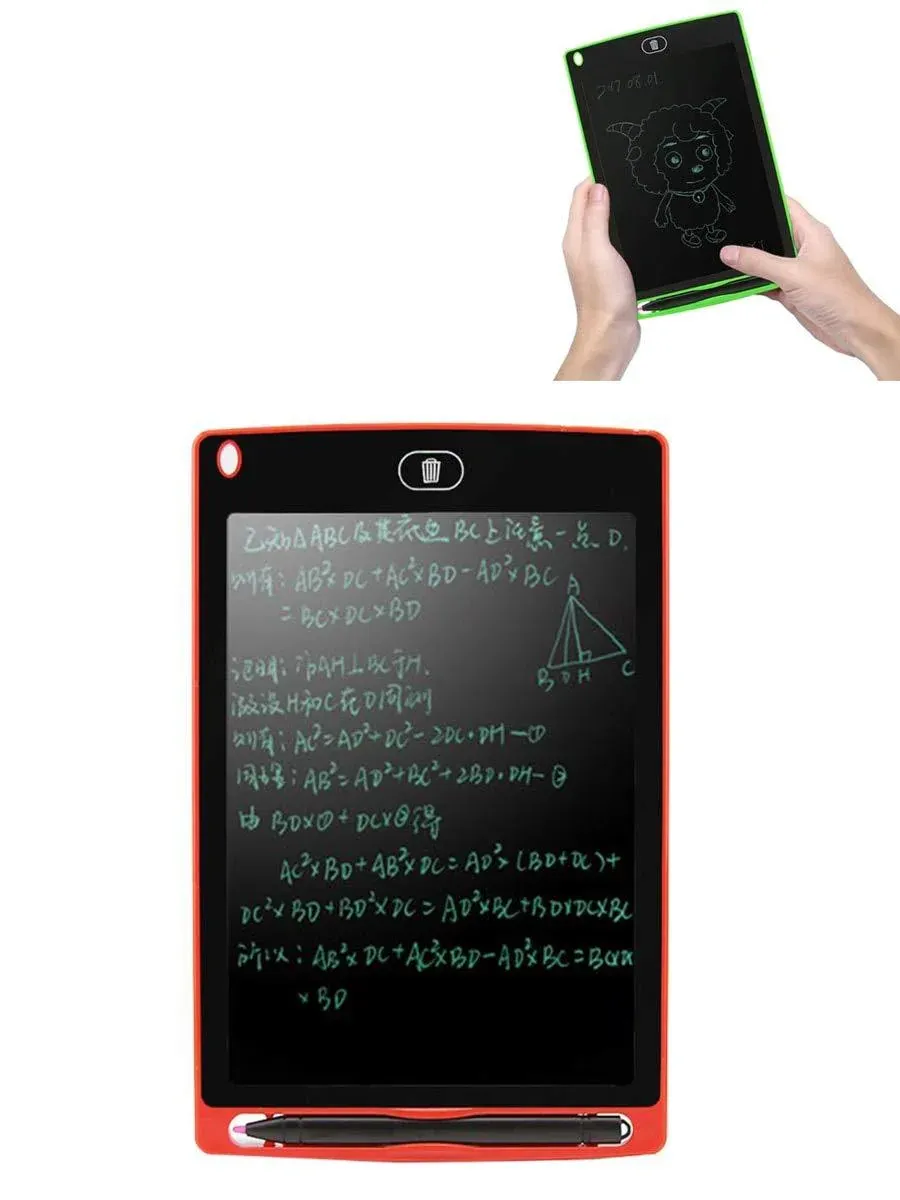 2017.08.01
已知△ABC及其底边BC上任意一点D,
则有: AB²×DC+AC²×BD-AD²×BC
=BC×DC×BD
A
B D H C
证明: 作AH⊥BC于H.
假设H和C在D同侧
则有: AC²=AD²+DC²-2DC·DH-①
同理: AB²=AD²+BC²+2BD·DH-②
由BD×①+DC×②得
AC²×BD+AB²×DC=AD²×(BD+DC)+
DC²×BD+BD²×DC=AD²×BC+BD×DC×BC
所以: AB²×DC+AC²×BD-AD²×BC=BC×DC
×BD